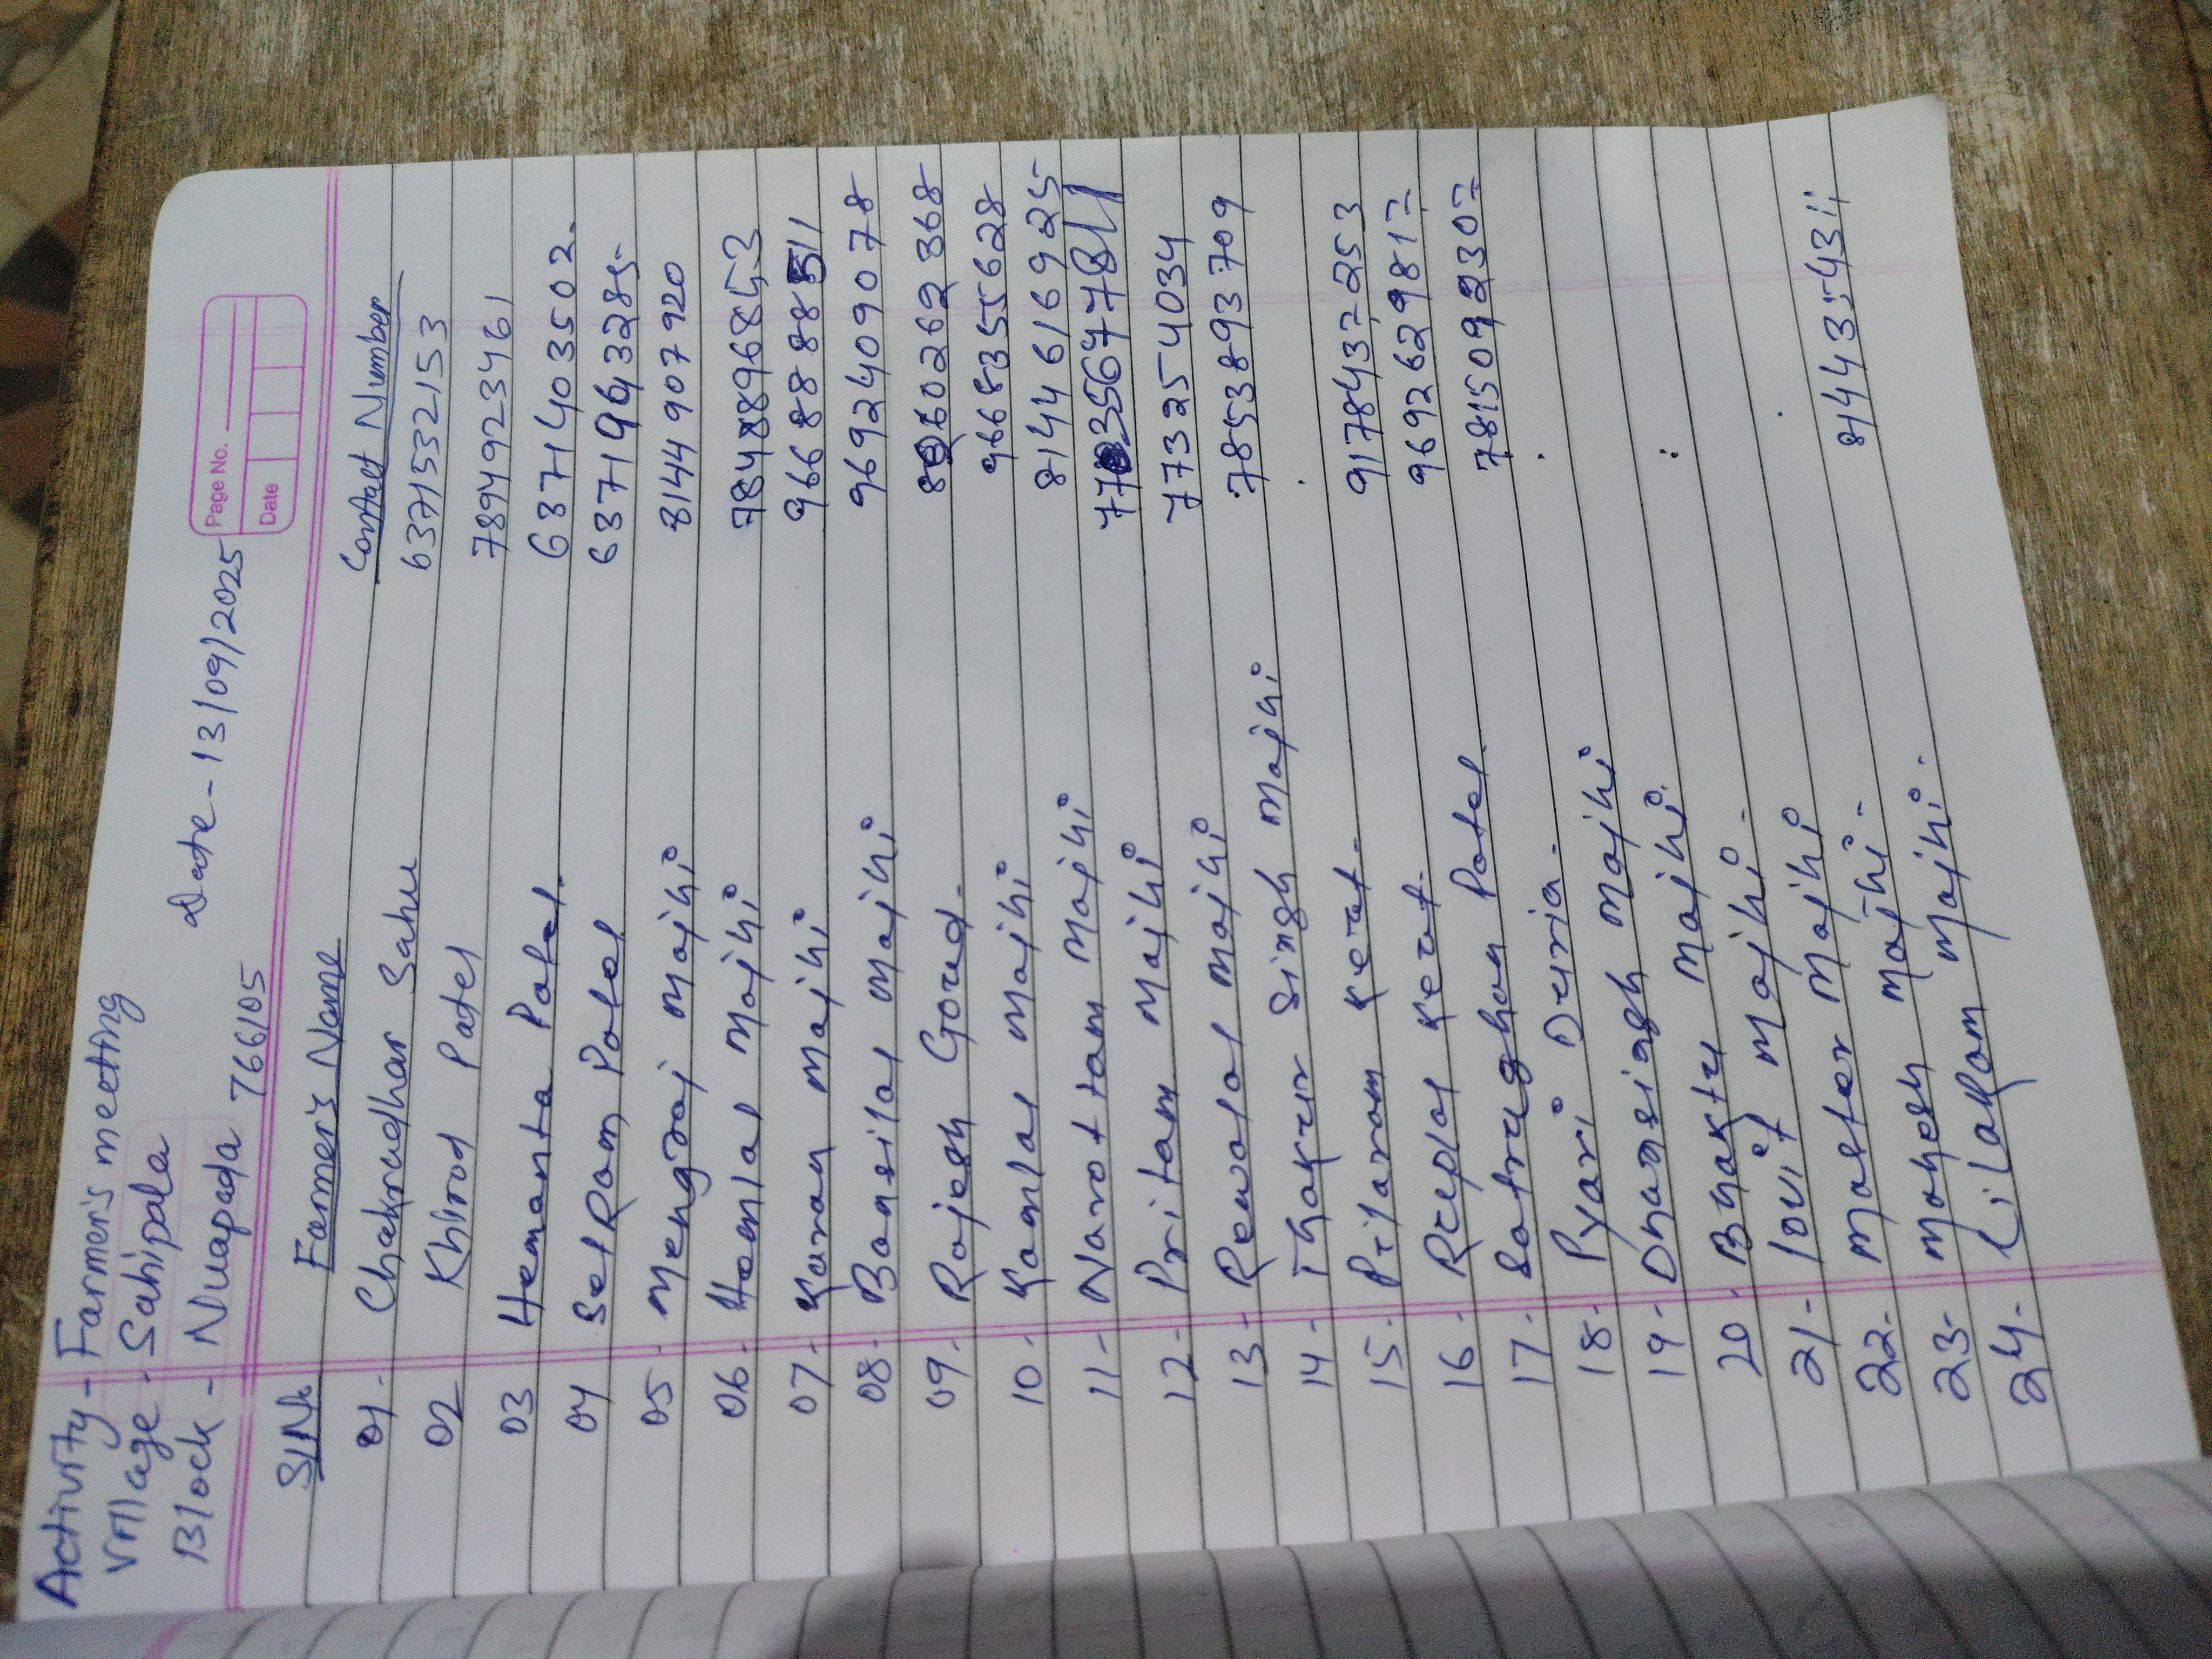 Activity - Farmer's meeting
Village - Sahipala Date - 13/09/2025
Block - Nuapada 766105
Page No.
Date
Sl No. Farmer's Name Contact Number
01 - Chakradhar Sahu 6371532153
02 Khirod Patel 7894923461
03 Hemanta Patel. 6371403502.
04 SetRam Patel 6371963285
05 - Mengraj Majhi 8144907920
06 - Hemlal Majhi 7848896853
07 - Karan Majhi 9668888511
08 - Bansilal Majhi 9692409078
09 - Rajesh Goud. 8260262368
10 - Kanlal Majhi 9668355628
11 - Narottam Majhi 8144616925
12 - Pritam Majhi
13 - Rewalal Majhi 773254034
14 - Thakur Singh Majhi 7853893709
15 - Prilaram Keut -
16 - Ruplal Keut - 9178437253
17 - Satrughan Patel 9692629817
18 - Pyari Duria - 7815092307
19 - Dhansingh Majhi
20 - Bhaktu Majhi
21 - lovit Majhi -
22 - Master Majhi
23 - Mahesh Majhi - 8144354311
24 - Lilaram Majhi.